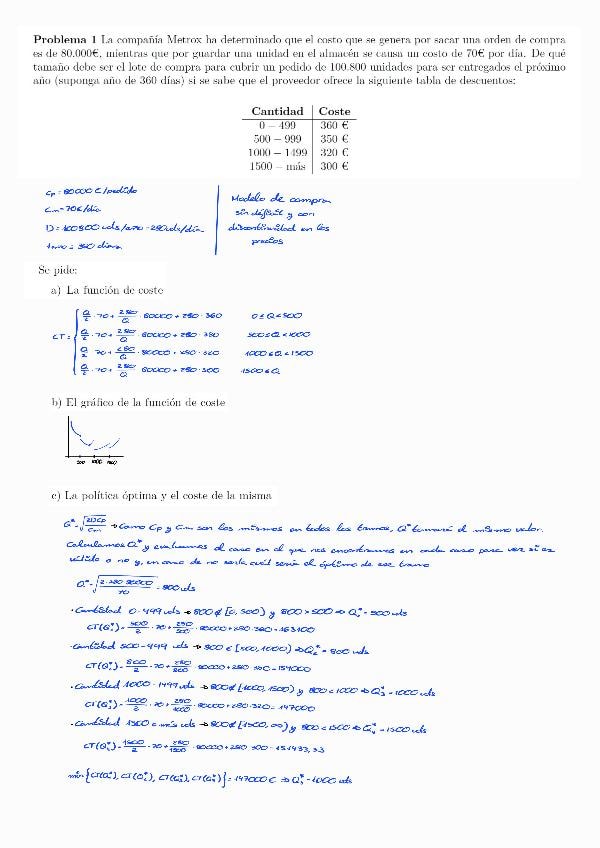 Problema 1 La compañía Metrox ha determinado que el costo que se genera por sacar una orden de compra
es de 80.000€, mientras que por guardar una unidad en el almacén se causa un costo de 70€ por día. De qué
tamaño debe ser el lote de compra para cubrir un pedido de 100.800 unidades para ser entregados el próximo
año (suponga año de 360 días) si se sabe que el proveedor ofrece la siguiente tabla de descuentos:
Cantidad Coste
0 – 499 360 €
500 – 999 350 €
1000 – 1499 320 €
1500 – más 300 €
Cp = 80000 €/pedido
Cm = 70€/día
D = 100800 uds/año = 280uds/día
Modelo de compra
sin déficit y con
discontinuidad en los
precios
Se pide:
a) La función de coste
CT =
Q/2 · 70 + 280/Q · 80000 + 280 · 360 0 ≤ Q < 500
Q/2 · 70 + 280/Q · 80000 + 280 · 350 500 ≤ Q < 1000
Q/2 · 70 + 280/Q · 80000 + 280 · 320 1000 ≤ Q < 1500
Q/2 · 70 + 280/Q · 80000 + 280 · 300 1500 ≤ Q
b) El gráfico de la función de coste
500 1000 1500
c) La política óptima y el coste de la misma
Q* = √(2DCp/Cm) → Como Cp y Cm son los mismos en todos los tramos, Q* tomará el mismo valor.
Calculamos Q* y evaluamos el caso en el que nos encontramos en cada caso para ver si es
válido o no y, en caso de no serlo cuál sería el óptimo de ese tramo
Q* = √(2·280·80000/70) = 800 uds
· Cantidad 0-499 uds → 800 ∉ [0, 500) y 800 > 500 ⇒ Q₁* = 500 uds
CT(Q₁*) = 500/2 · 70 + 280/500 · 80000 + 280 · 360 = 163100
· Cantidad 500-499 uds → 800 ∈ [500, 1000) ⇒ Q₂* = 800 uds
CT(Q₂*) = 800/2 · 70 + 280/800 · 80000 + 280 · 350 = 154000
· Cantidad 1000-1499 uds → 800 ∉ [1000, 1500) y 800 < 1000 ⇒ Q₃* = 1000 uds
CT(Q₃*) = 1000/2 · 70 + 280/1000 · 80000 + 280 · 320 = 147000
· Cantidad 1500 o más uds → 800 ∉ [1500, ∞) y 800 < 1500 ⇒ Q₄* = 1500 uds
CT(Q₄*) = 1500/2 · 70 + 280/1500 · 80000 + 280 · 300 = 151433,33
min {CT(Q₁*), CT(Q₂*), CT(Q₃*), CT(Q₄*)} = 147000 € ⇒ Q₃* = 1000 uds